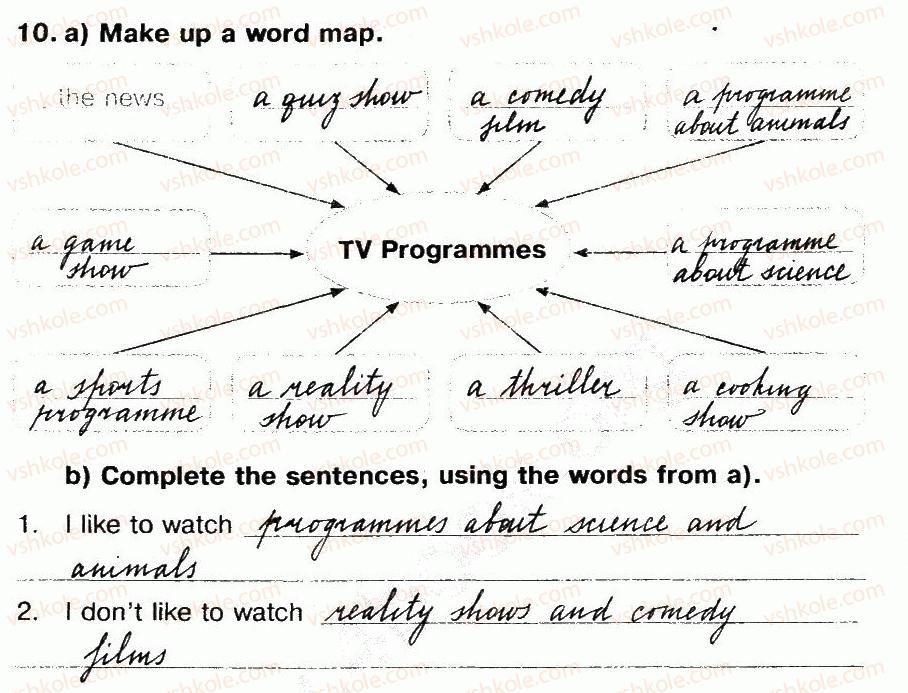 10. a) Make up a word map.
the news
a quiz show
a comedy
film
a programme
about animals
a game
show
TV Programmes
a programme
about science
a sports
programme
a reality
show
a thriller
a cooking
show
b) Complete the sentences, using the words from a).
1. I like to watch programmes about science and
animals
2. I don't like to watch reality shows and comedy
films
vshkole.com